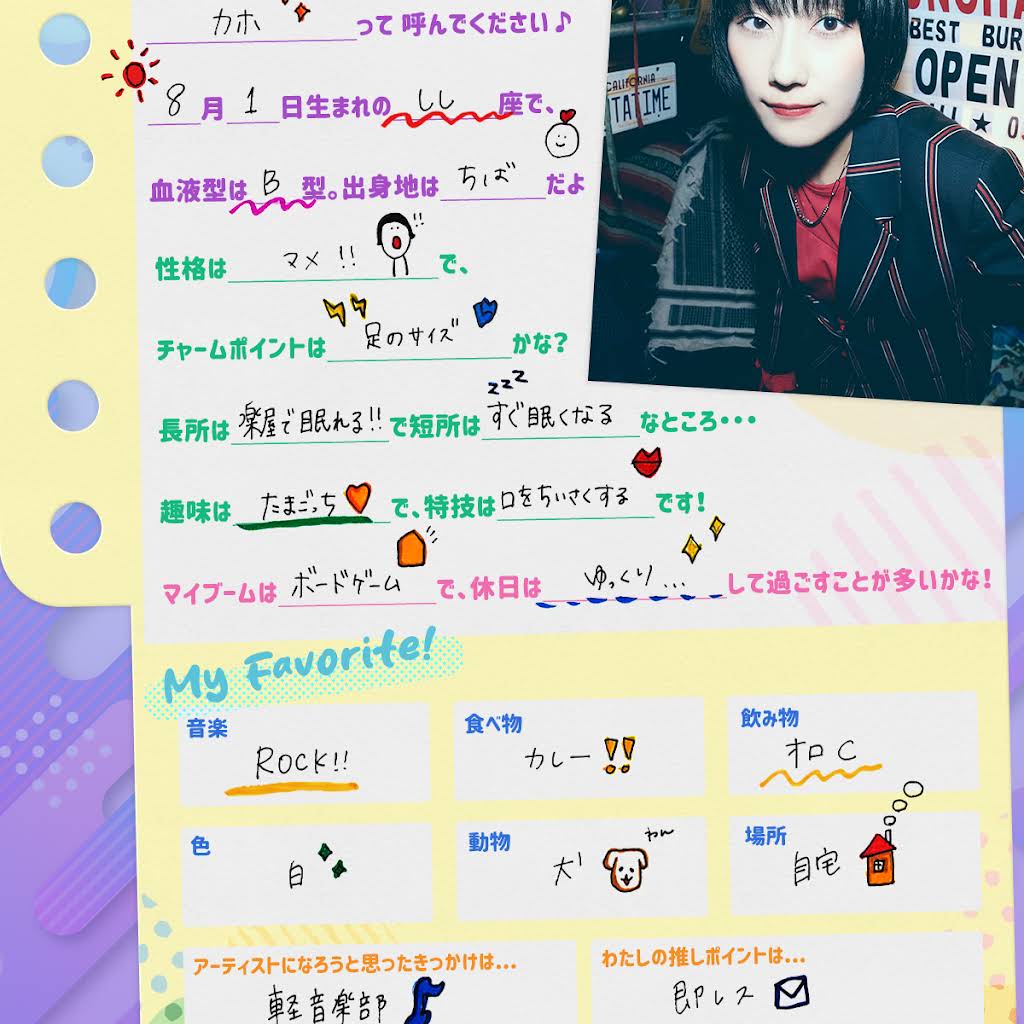 カホ って 呼んでください♪
8月1日生まれの しし 座で、
血液型は B 型。出身地は ちば だよ
性格は マメ!! で、
チャームポイントは 足のサイズ かな?
zzz
長所は 楽屋で眠れる!! で短所は すぐ眠くなる なところ・・・
趣味は たまごっち で、特技は 口をちいさくする です!
マイブームは ボードゲーム で、休日は ゆっくり... して過ごすことが多いかな!
CALIFORNIA
TATIME
BEST BUR
OPEN
My Favorite!
音楽
ROCK!!
食べ物
カレー!!
飲み物
オロC
色
白
動物
犬
わん
場所
自宅
アーティストになろうと思ったきっかけは...
軽音楽部
わたしの推しポイントは...
即レス